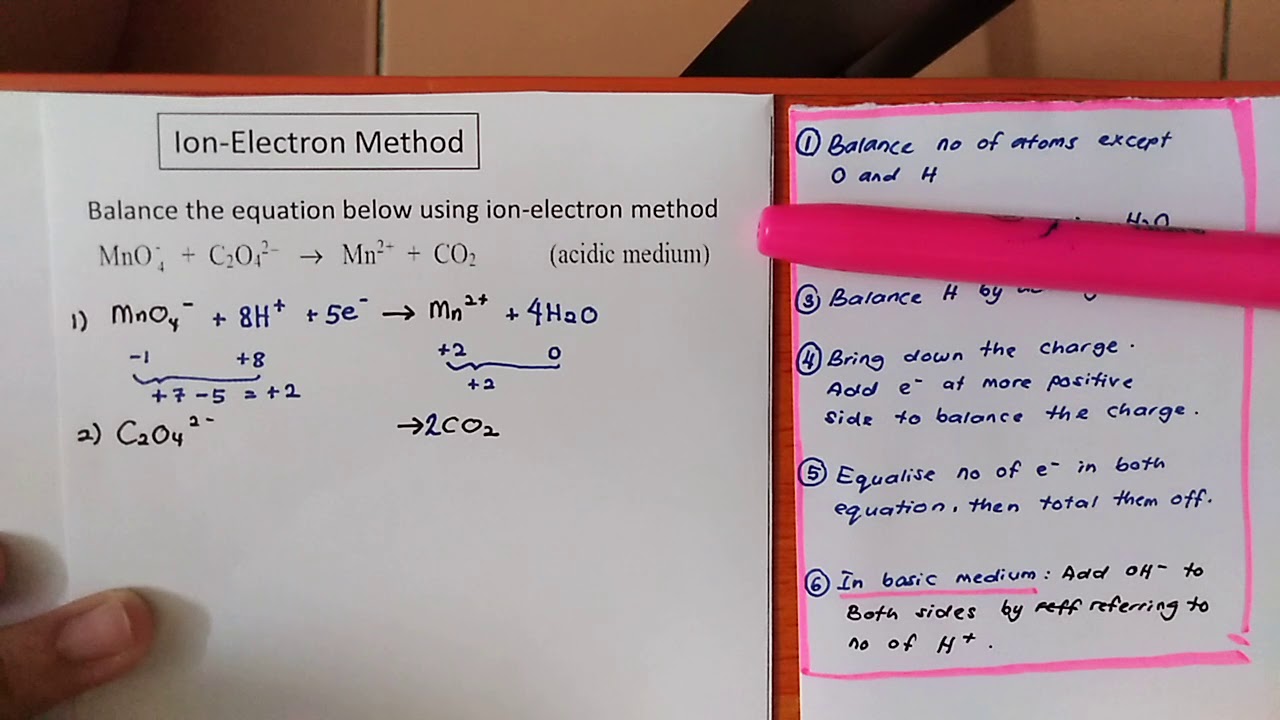 Ion-Electron Method
Balance the equation below using ion-electron method
MnO₄⁻ + C₂O₄²⁻ → Mn²⁺ + CO₂ (acidic medium)
1) MnO₄⁻ + 8H⁺ + 5e⁻ → Mn²⁺ + 4H₂O
-1 +8 +2 0
+7 -5 = +2 +2
2) C₂O₄²⁻ → 2CO₂
① Balance no of atoms except
O and H
H₂O
③ Balance H by
④ Bring down the charge.
Add e⁻ at more positive
side to balance the charge.
⑤ Equalise no of e⁻ in both
equation, then total them off.
⑥ In basic medium: Add OH⁻ to
Both sides by referring to
no of H⁺.